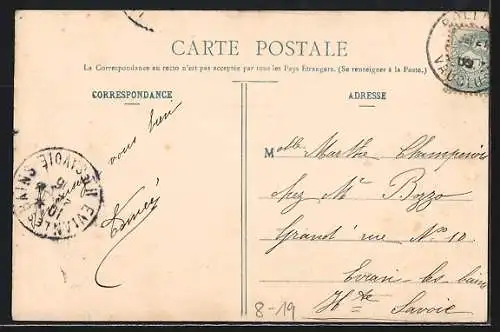 CARTE POSTALE
La Correspondance au recto n'est pas acceptée par tous les Pays Etrangers. (Se renseigner à la Poste.)
CORRESPONDANCE
ADRESSE
VAUCLUSE
vous bien
Mdlle Marthe
chez Mr Bozzo
Grand'rue No 10
Evian-les-bains
Hte Savoie
EVIAN-LES-BAINS
HTE SAVOIE
8-19